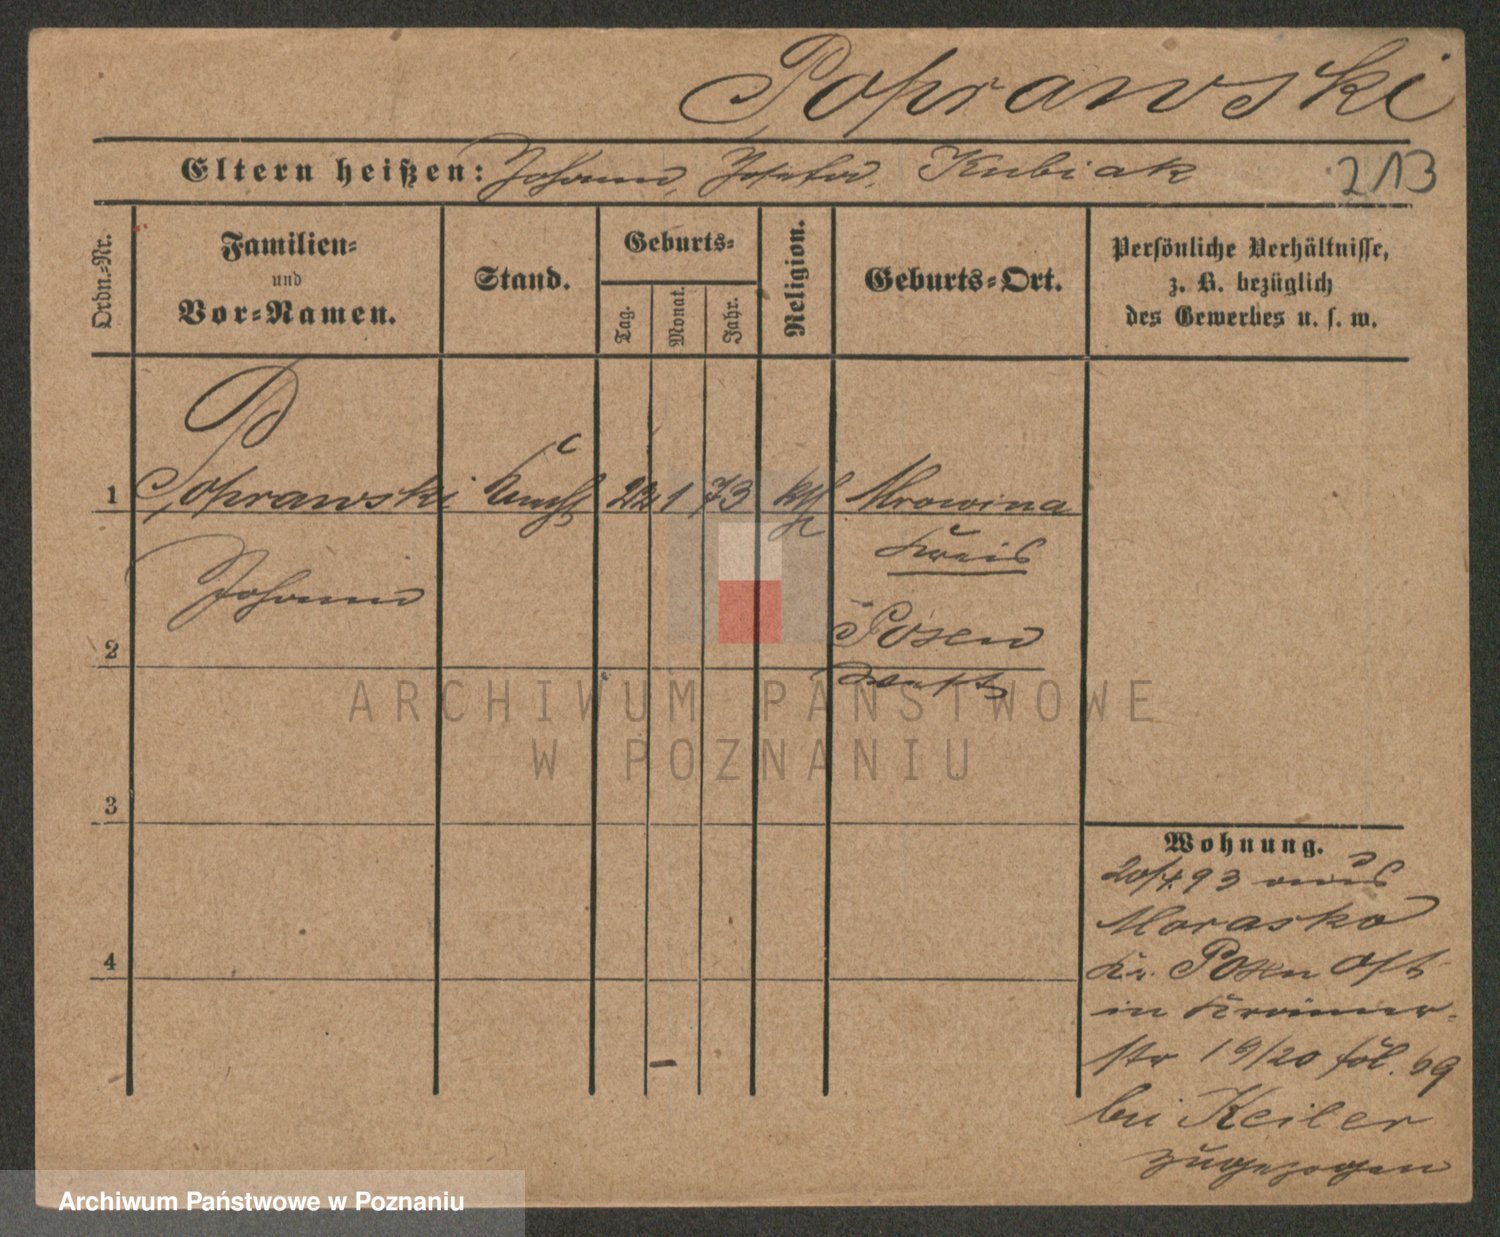 Poprawski
Eltern heißen: Johann, Josefa, Kubiak
213
Ordn.-Nr.
Familien-
und
Vor-Namen.
Stand.
Geburts-
Tag.
Monat.
Jahr.
Religion.
Geburts-Ort.
Persönliche Verhältnisse,
z. B. bezüglich
des Gewerbes u. s. w.
1 Poprawski Knecht 22 1 73 kth Mrowina
Kreis
Johann
Posen
2
West
3
4
Wohnung.
20/4 93 aus
Morasko
Kr. Posen Ost
in Krämer-
str 19/20 fol. 69
bei Keiler
zugezogen
ARCHIWUM PAŃSTWOWE
W POZNANIU
Archiwum Państwowe w Poznaniu